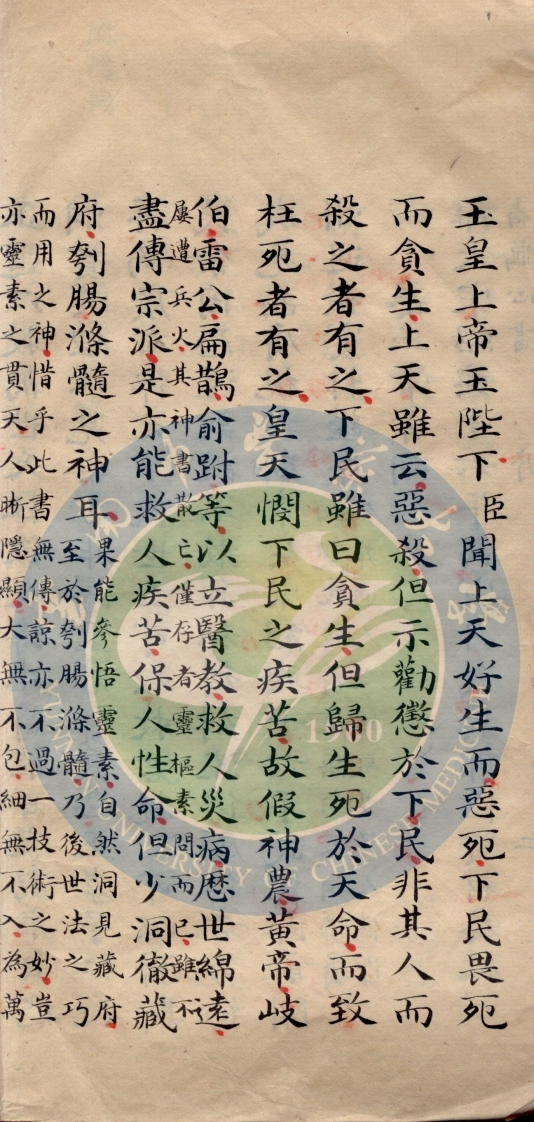 玉皇上帝玉陛下臣聞上天好生而惡死下民畏死
而貪生上天雖云惡殺但示勸懲於下民非其人而
殺之者有之下民雖曰貪生但歸生死於天命而致
枉死者有之皇天憫下民之疾苦故假神農黃帝岐
伯雷公扁鵲俞跗等以立醫教救人災病歷世綿遠
屢遭兵火其神書散亡僅存者靈樞素問而已雖不
盡傳宗派是亦能救人疾苦保人性命但少洞徹藏
府刳腸滌髓之神耳
果能參悟靈素自然洞見藏府
至於刳腸滌髓乃後世法之巧
而用之神惜乎此書無傳諒亦不過一技術之妙豈
亦靈素之貫天人晰隱顯大無不包細無不入為萬
1960
UNIVERSITY OF CHINESE MEDICINE